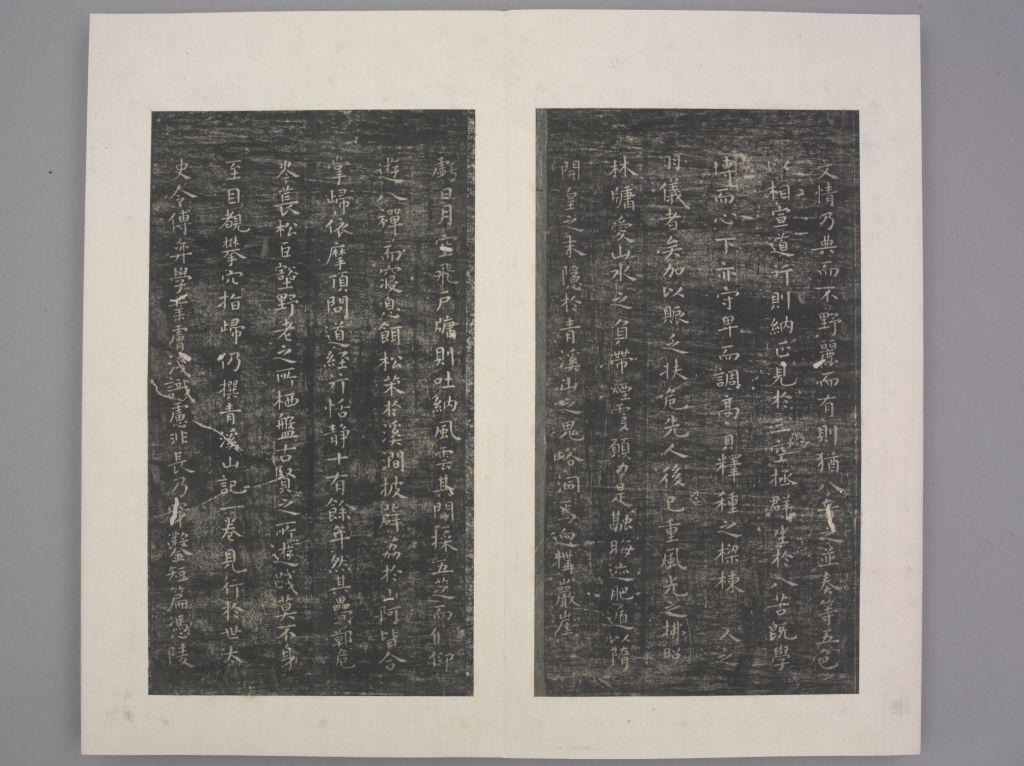 文情乃典而不野麗而有則猶八音之並奏等五色
以相宣道行則納正見於三空拯群生於八苦既學
博而心下亦守卑而調高實釋種之樑棟 人之
羽儀者矣加以賑乏扶危先人後己重風光之拂照
林牖愛山水之負帶煙雲願力是融晦迹肥遁以隋
開皇之末隱於青溪山之鬼谷洞焉迥構巖崖
虧日月空飛戶牖則吐納風雲其間採五芝而偃仰
遊八禪而寢息餌松朮於溪澗披薜荔於山阿皆合
掌歸依摩頂問道經行恬靜十有餘年然其疊鄣危
岑長松巨壑野老之所栖盤古賢之所遊踐莫不身
至目覩攀穴指歸仍撰青溪山記一卷見行於世太
史令傅弈學業膚淺識慮非長乃穿鑿短篇憑陵